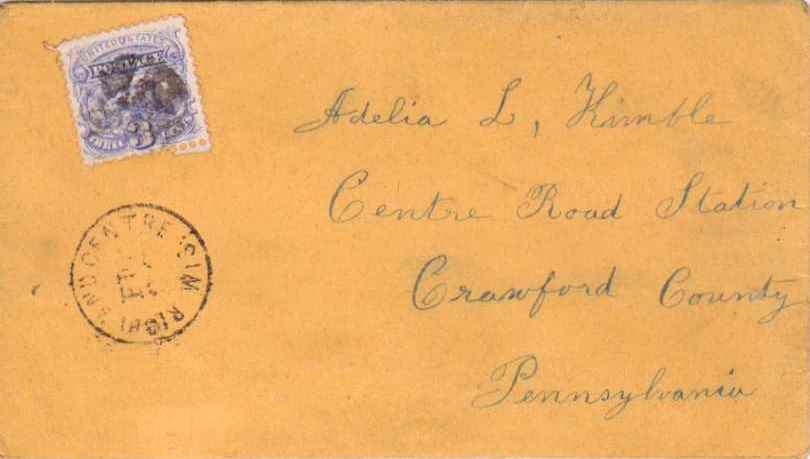 UNITED STATES
POSTAGE
THREE 3 CENTS
RICHLAND CENTRE WIS
FEB
Adelia L, Kimble
Centre Road Station
Crawford County
Pennsylvania